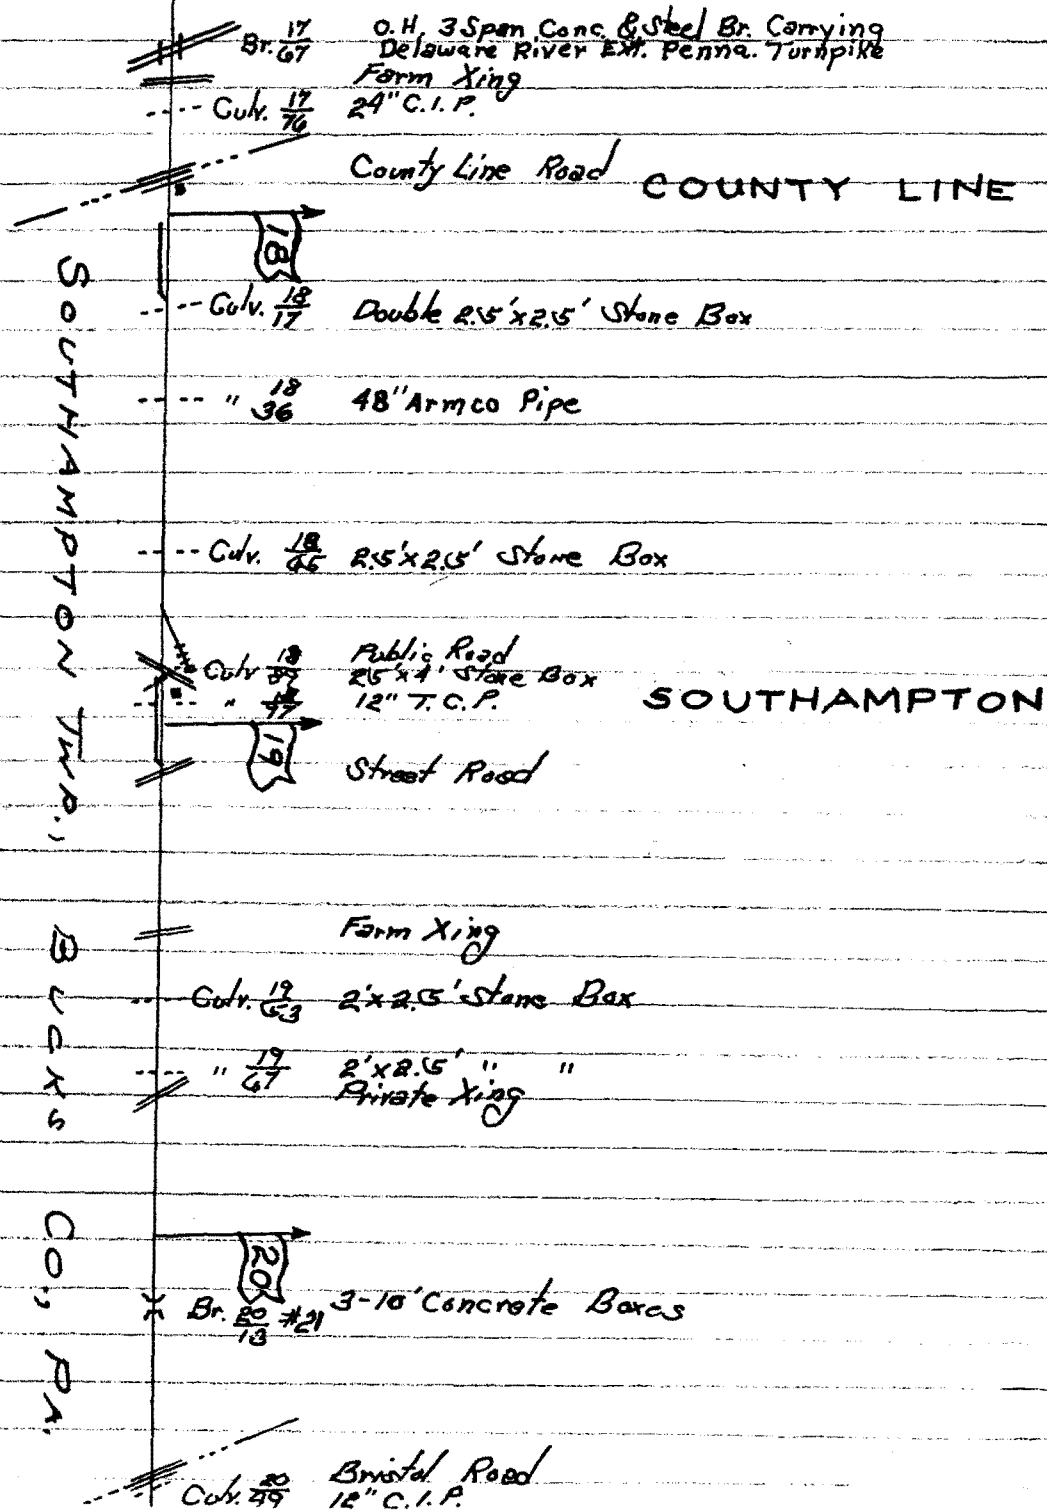 Br. 17/67 O.H. 3 Span Conc. & Steel Br. Carrying
Delaware River Ext. Penna. Turnpike
Farm Xing
Culv. 17/76 24" C.I.P.
County Line Road
COUNTY LINE
18
Culv. 18/17 Double 2.5'x2.5' Stone Box
" 18/36 48" Armco Pipe
Culv. 18/65 2.5'x2.5' Stone Box
Public Road
Culv. 18/89 2.5'x4' Stone Box
" 12" T.C.P.
SOUTHAMPTON
19
Street Road
Farm Xing
Culv. 19/53 2'x2.5' Stone Box
" 19/67 2'x2.5' " "
Private Xing
20
Br. 20/13 #21 3-10' Concrete Boxes
Bristol Road
Culv. 20/49 12" C.I.P.
SOUTHAMPTON TWP., BUCKS CO., PA.